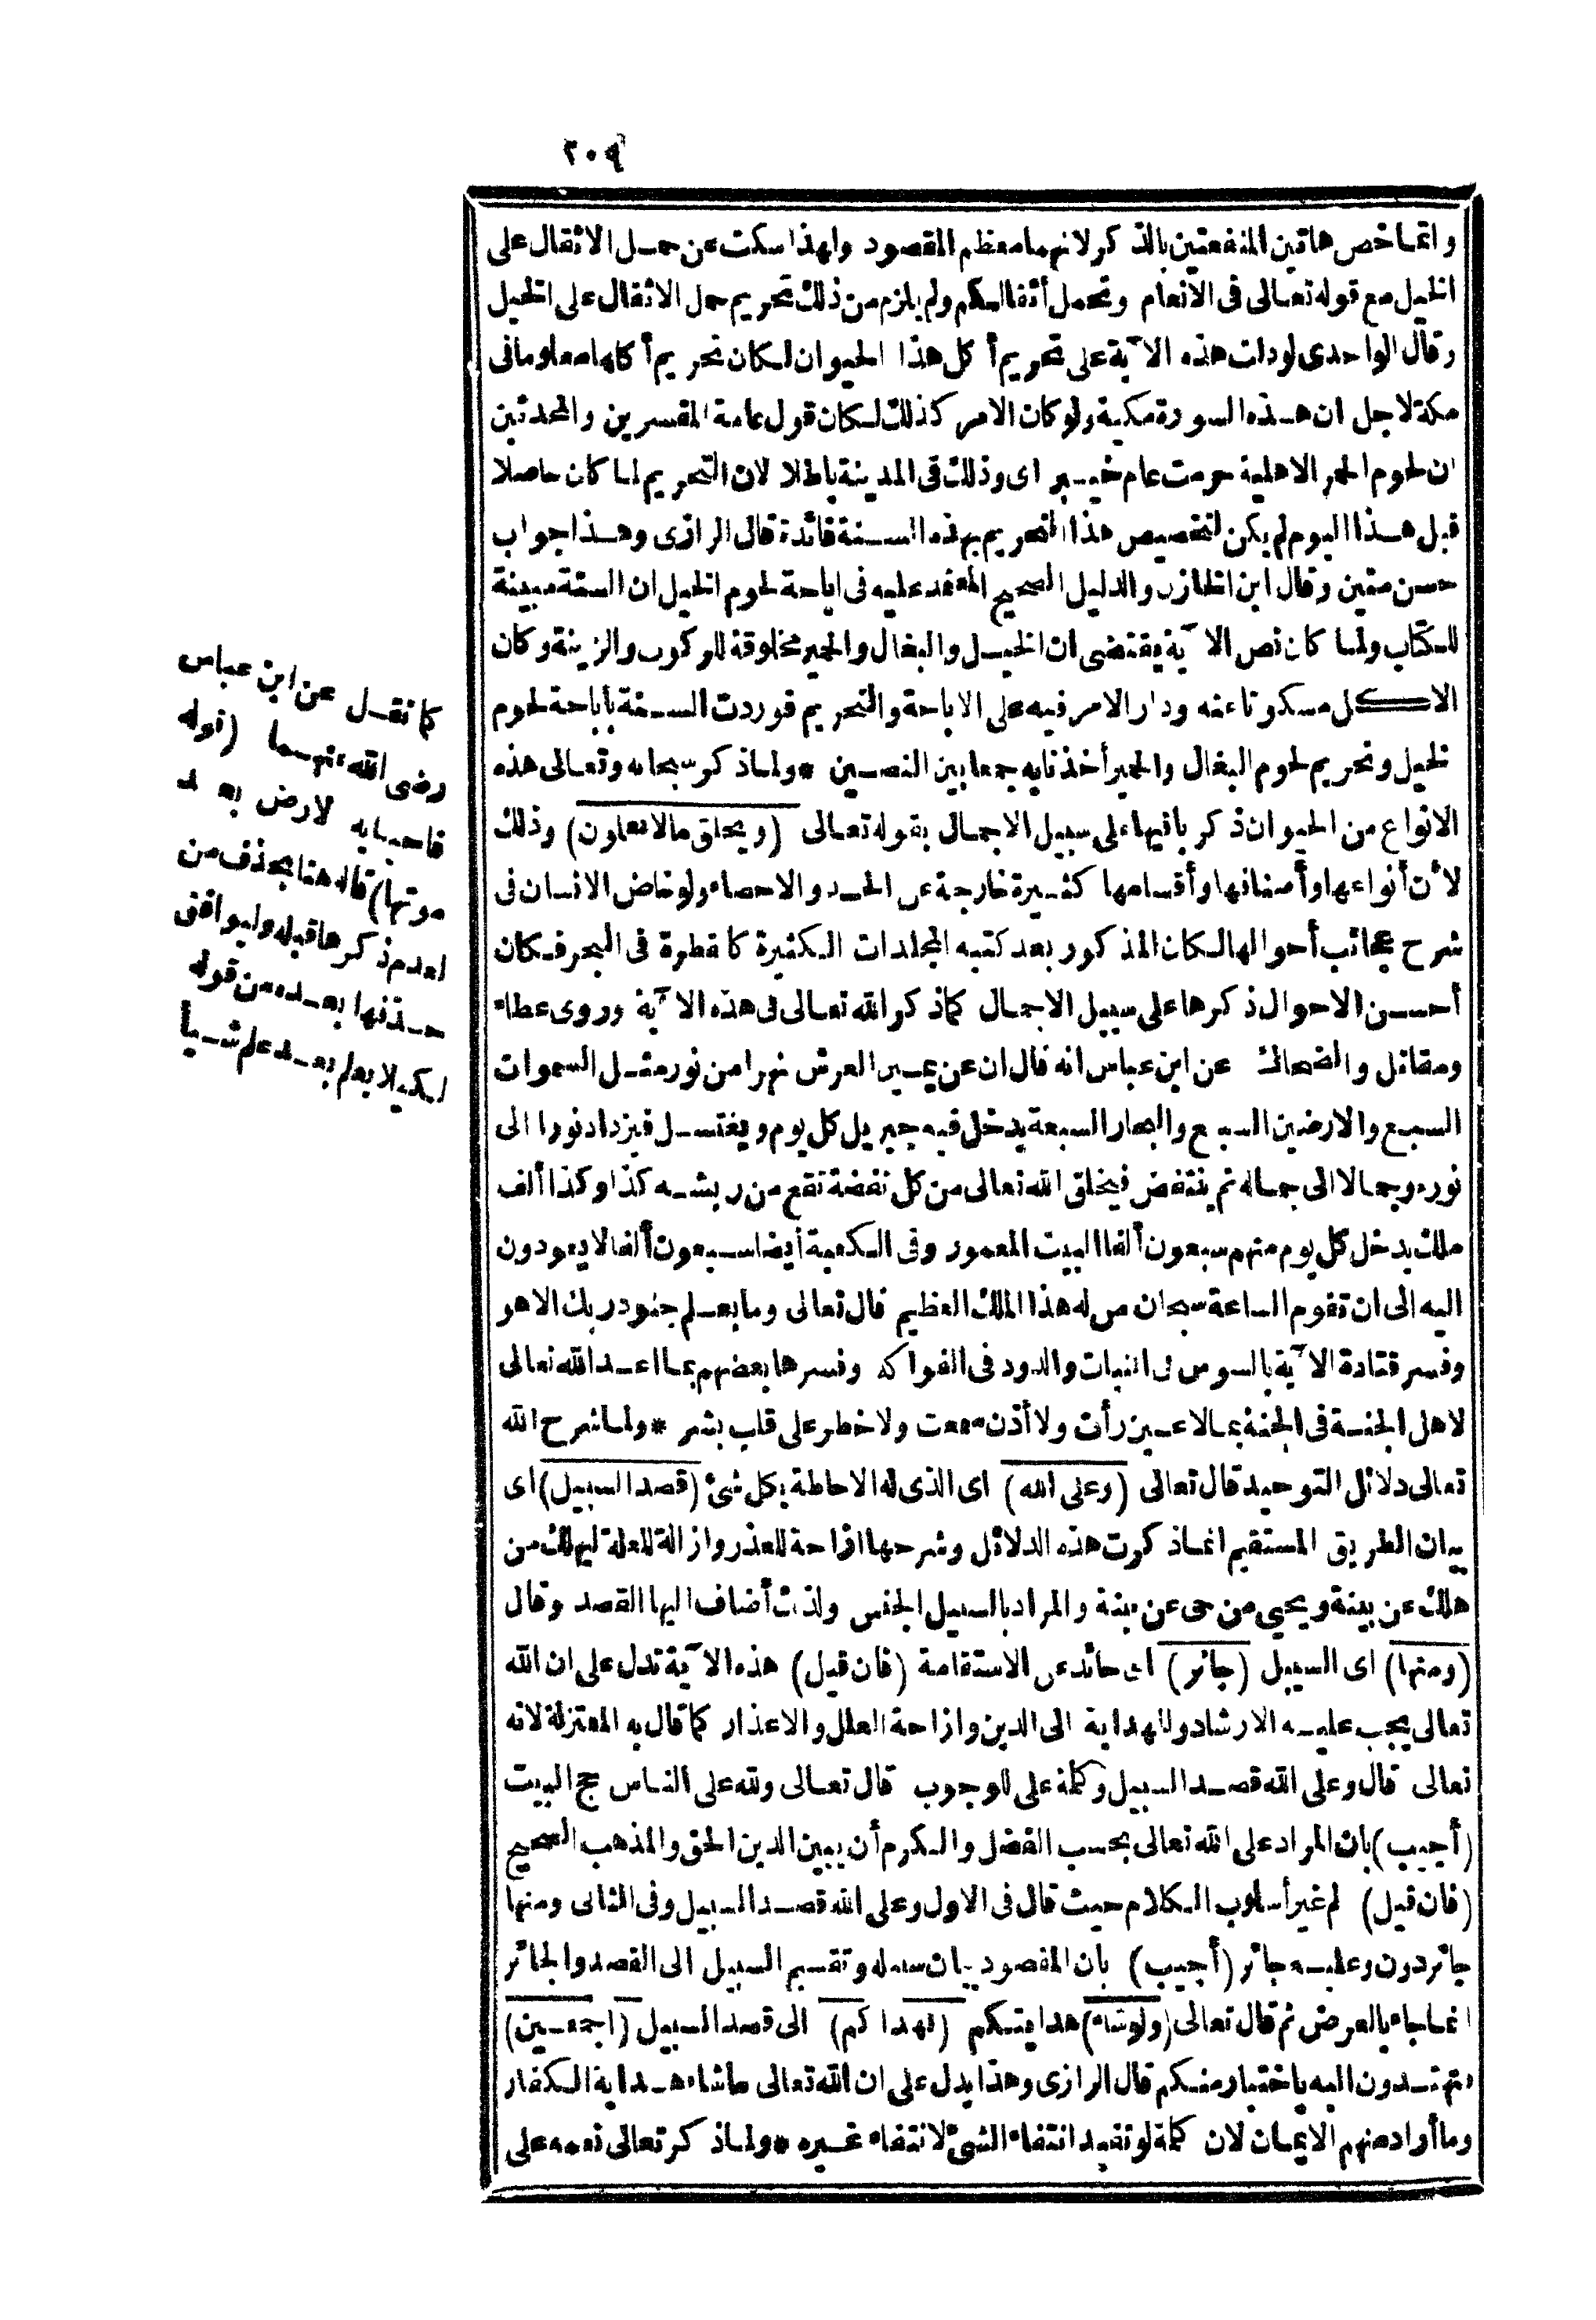 ٢٠٩
وانما خص هاتين المنفعتين بالذكر لانهما معظم المقصود ولهذا سكت عن حمل الاثقال على
الخيل مع قوله تعالى فى الانعام وتحمل أثقالكم ولم يلزم من ذلك تحريم حمل الاثقال على الخيل
وقال الواحدى لو دلت هذه الآية على تحريم أكل هذا الحيوان لكان تحريم أكلها معلوما فى
مكة لاجل ان هذه السورة مكية ولو كان الامر كذلك لكان قول عامة المفسرين والمحدثين
ان لحوم الحمر الاهلية حرمت عام خيبر اى وذلك فى المدينة باطلا لان التحريم لما كان حاصلا
قبل هذا اليوم لم يكن لتخصيص هذا التحريم بهذه السنة فائدة قال الرازى وهذا جواب
حسن متين وقال ابن الخازن والدليل الصحيح المعتمد عليه فى اباحة لحوم الخيل ان السنة مبينة
للكتاب ولما كان نص الآية يقتضى ان الخيل والبغال والحمير مخلوقة للركوب والزينة وكان
الاكل مسكوتا عنه ودار الامر فيه على الاباحة والتحريم فوردت السنة بأباحة لحوم
الخيل وتحريم لحوم البغال والحمير أخذنا به جمعا بين النصين * ولما ذكر سبحانه وتعالى هذه
الانواع من الحيوان ذكر باقيها على سبيل الاجمال بقوله تعالى (ويخلق مالا تعلمون) وذلك
لأن أنواعها وأصنافها وأقسامها كثيرة خارجة عن الحد والاحصاء ولو خاض الانسان فى
شرح عجائب أحوالها لكان المذكور بعد كتبه المجلدات الكثيرة كالقطرة فى البحر فكان
أحسن الاحوال ذكرها على سبيل الاجمال كما ذكر الله تعالى فى هذه الآية وروى عطاء
ومقاتل والضحاك عن ابن عباس انه قال ان عن يمين العرش نهرا من نور مثل السموات
السبع والارضين السبع والبحار السبعة يدخل فيه جبريل كل يوم ويغتسل فيزداد نورا الى
نوره وجمالا الى جماله ثم ينتفض فيخلق الله تعالى من كل نفضة تقع من ريشه كذا وكذا ألف
ملك يدخل كل يوم منهم سبعون ألفا البيت المعمور وفى الكعبة أيضا سبعون ألفا لا يعودون
اليه الى ان تقوم الساعة سبحان من له هذا الملك العظيم قال تعالى وما يعلم جنود ربك الا هو
وفسر قتادة الآية بالسوس فى النبات والدود فى الفواكه وفسرها بعضهم بما اعد الله تعالى
لاهل الجنة فى الجنة بما لا عين رأت ولا أذن سمعت ولا خطر على قلب بشر * ولما شرح الله
تعالى دلائل التوحيد قال تعالى (وعلى الله) اى الذى له الاحاطة بكل شئ (قصد السبيل) اى
بيان الطريق المستقيم انما ذكرت هذه الدلائل وشرحها ازاحة للعذر وازالة للعلة ليهلك من
هلك عن بينة ويحيى من حى عن بينة والمراد بالسبيل الجنس ولذلك أضاف اليها القصد وقال
(ومنها) اى السبيل (جائر) اى حائد عن الاستقامة (فان قيل) هذه الآية تدل على ان الله
تعالى يجب عليه الارشاد والهداية الى الدين وازاحة العلل والاعذار كما قال به المعتزلة لانه
تعالى قال وعلى الله قصد السبيل وكلمة على للوجوب قال تعالى ولله على الناس حج البيت
(أجيب) بان المراد على الله تعالى بحسب الفضل والكرم أن يبين الدين الحق والمذهب الصحيح
(فان قيل) لم غير أسلوب الكلام حيث قال فى الاول وعلى الله قصد السبيل وفى الثانى ومنها
جائر دون وعليه جائر (أجيب) بان المقصود بيان سبيله وتقسيم السبيل الى القصد والجائر
انما جاء بالعرض ثم قال تعالى (ولو شاء) هدايتكم (لهداكم) الى قصد السبيل (اجمعين)
فتهتدون اليه باختيار منكم قال الرازى وهذا يدل على ان الله تعالى ما شاء هداية الكفار
وما أراد منهم الايمان لان كلمة لو تفيد انتفاء الشئ لانتفاء غيره * ولما ذكر تعالى نعمه على
كما نقل عن ابن عباس
رضى الله عنهما (قوله
فاحيا به الارض بعد
موتها) قاله هنا بحذف من
لعدم ذكرها قبله وليوافق
حذفها بعده من قوله
لكيلا يعلم بعد علم شيأ